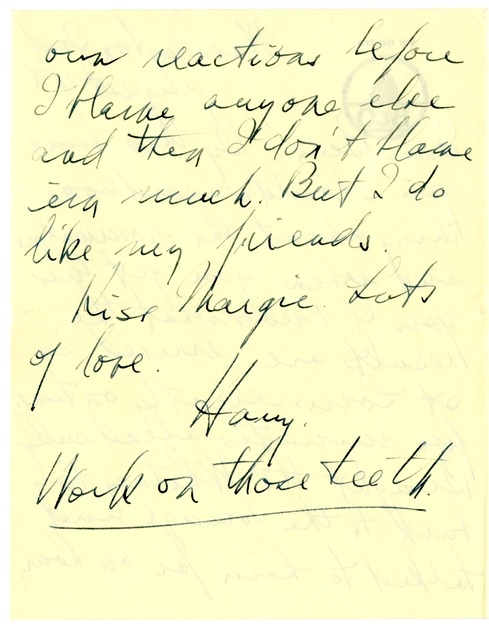 own reactions before
I blame anyone else
and then I don't blame
'em much. But I do
like my friends.
Kiss Margie. Lots
of love.
Harry.
Work on those teeth.